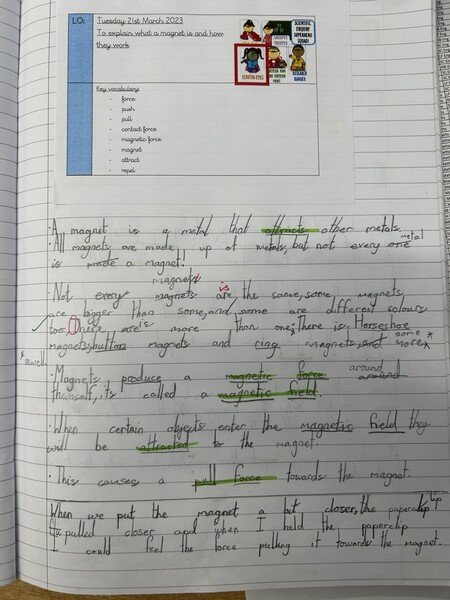 L.O:
Tuesday 21st March 2023
To explain what a magnet is and how
they work
SCIENTIFIC
ENQUIRY
SUPERHERO
SQUAD
TROOPER
SCRUTIN-EYES
RESEARCH
RANGER
Key vocabulary:
- force
- push
- pull
- contact force
- magnetic force
- magnet
- attract
- repel
·A magnet is a metal that attracts other metals.
·All magnets are made up of metals, but not every one metal
is made a magnet!
magnets
·Not every magnets are is the same, some magnets
are bigger then some, and some are different colours
too. There are is more than one, there is Horseshoe
magnets, button magnets and ring magnets and some more*
* aswell
·Magnets produce a magnetic force around around
themself, its called a magnetic field.
·When certain objects enter the magnetic field they
will be attracted to the magnet.
·This causes a pull force towards the magnet.
When we put the magnet a bit closer, the paperclip
pulled closer and when I held the paperclip
I could feel the force pulling it towards the magnet.